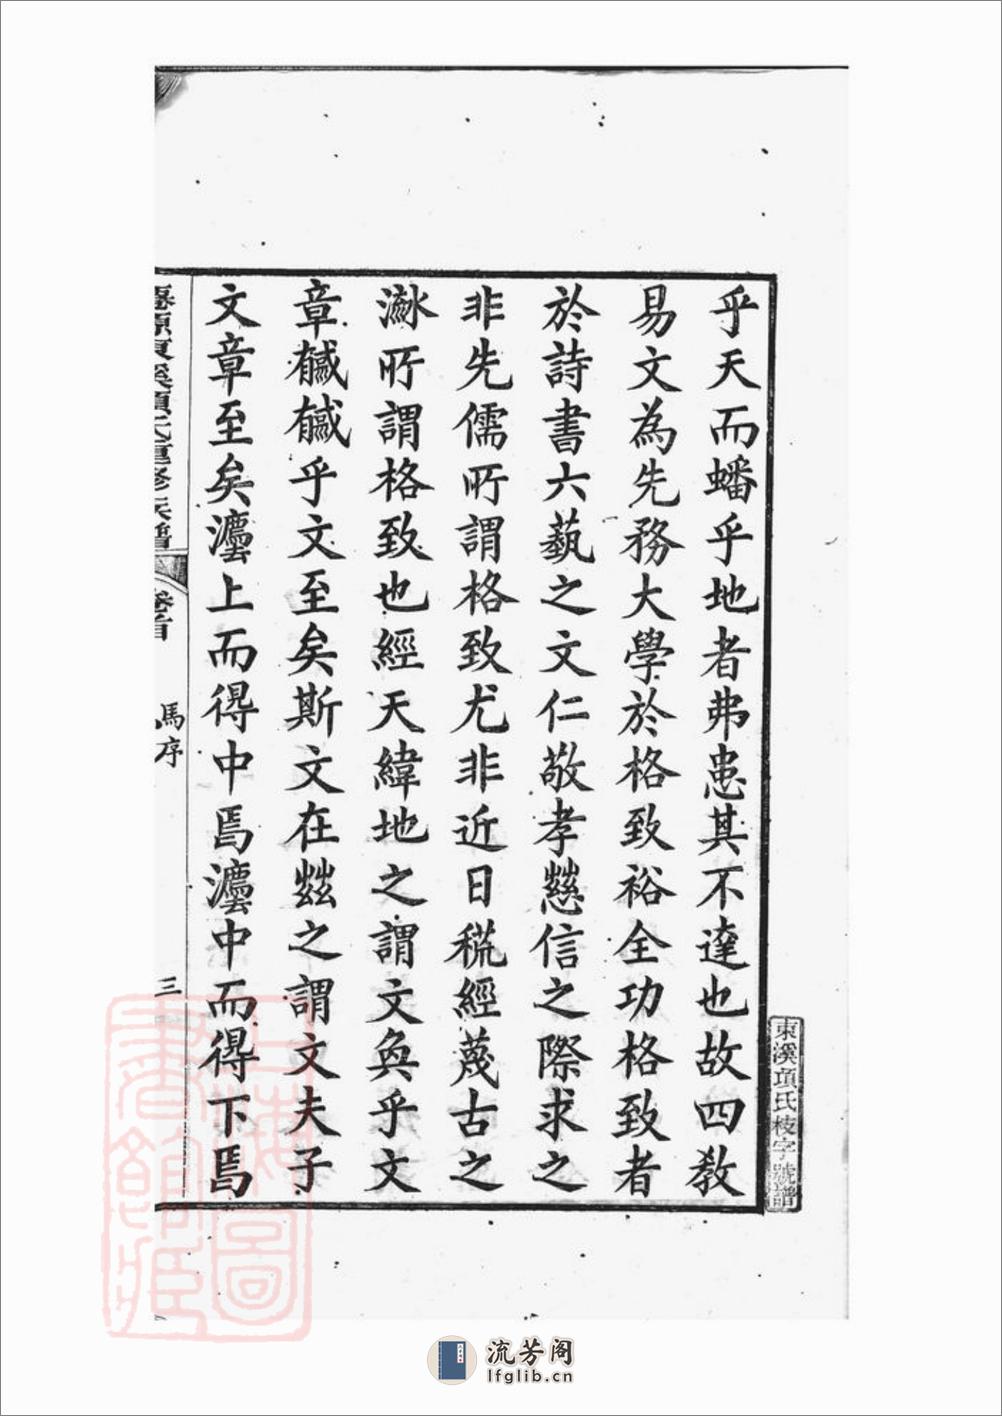 乎天而蟠乎地者弗患其不達也故四教
易文為先務大學於格致裕全功格致者
於詩書六藝之文仁敬孝慈信之際求之
非先儒所謂格致尤非近日毻經蔑古之
所謂格致也經天緯地之謂文奐乎文
章觱觱乎文至矣斯文在兹之謂文夫子
文章至矣灋上而得中焉灋中而得下焉
婺源東溪項氏重修族譜
卷首
馬序
三
東溪項氏枝字號譜
上海圖書館藏
流芳阁
lfglib.cn